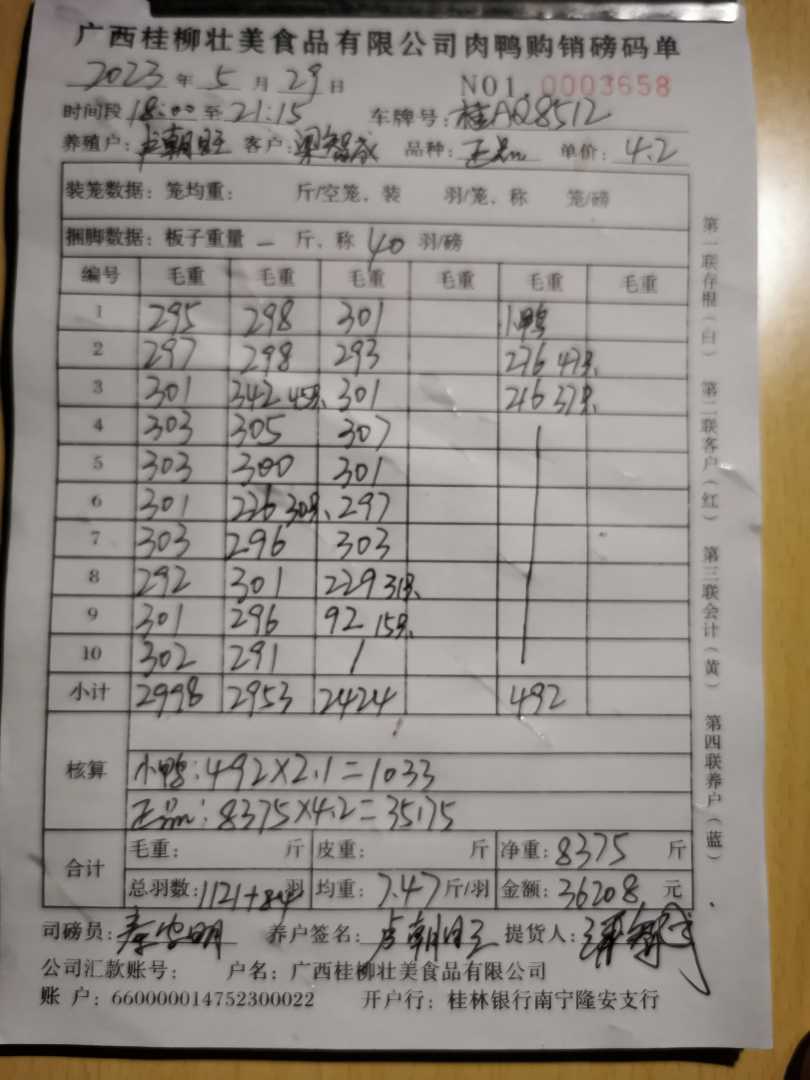 广西桂柳壮美食品有限公司肉鸭购销磅码单
2023 年 5 月 29 日 NO1. 0003658
时间段 18:00 至 21:15 车牌号: 桂AQ8512
养殖户: 卢朝旺 客户: 梁智成 品种: 正品 单价: 4.2
装笼数据: 笼均重: 斤/空笼、装 羽/笼、称 笼/磅
捆脚数据: 板子重量 一 斤、称 40 羽/磅
编号 毛重 毛重 毛重 毛重 毛重 毛重
1 295 298 301 小鸭
2 297 298 293 276 47只、
3 301 342 45只、 301 216 37只、
4 303 305 307
5 303 300 301
6 301 226 30只、 297
7 303 296 303
8 292 301 229 31只、
9 301 296 92 15只、
10 302 291 /
小计 2998 2953 2424 492
核算
小鸭: 492×2.1=1033
正品: 8375×4.2=35175
合计
毛重: 斤 皮重: 斤 净重: 8375 斤
总羽数: 1121+84 羽 均重: 7.47 斤/羽 金额: 36208 元
司磅员: 养户签名: 卢朝旺 提货人: 梁智成
公司汇款账号: 户名: 广西桂柳壮美食品有限公司
账 户: 660000014752300022 开户行: 桂林银行南宁隆安支行
第一联存根(白) 第二联客户(红) 第三联会计(黄) 第四联养户(蓝)